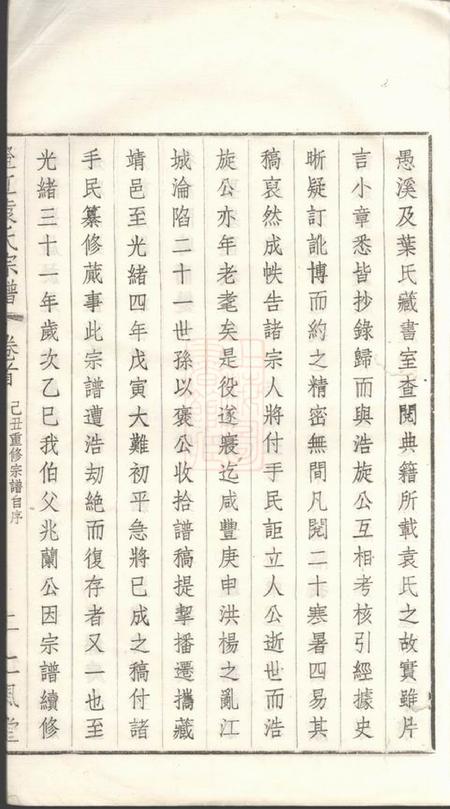 愚溪及葉氏藏書室查閱典籍所載袁氏之故實雖片
言小章悉皆抄錄歸而與浩旋公互相考核引經據史
晰疑訂訛博而約之精密無間凡閱二十寒暑四易其
稿裒然成帙告諸宗人將付手民詎立人公逝世而浩
旋公亦年老耄矣是役遂寢迄咸豐庚申洪楊之亂江
城淪陷二十一世孫以褒公收拾譜稿提挈播遷攜藏
靖邑至光緒四年戊寅大難初平急將已成之稿付諸
手民纂修蕆事此宗譜遭浩劫絶而復存者又一也至
光緒三十一年歲次乙巳我伯父兆蘭公因宗譜續修
袁氏宗譜
卷首
己丑重修宗譜自序